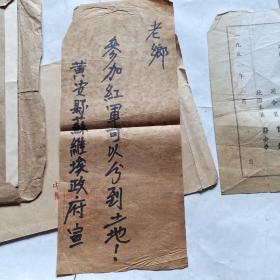 老鄉
參加紅軍可以分到土地！
黄安縣蘇維埃政府宣